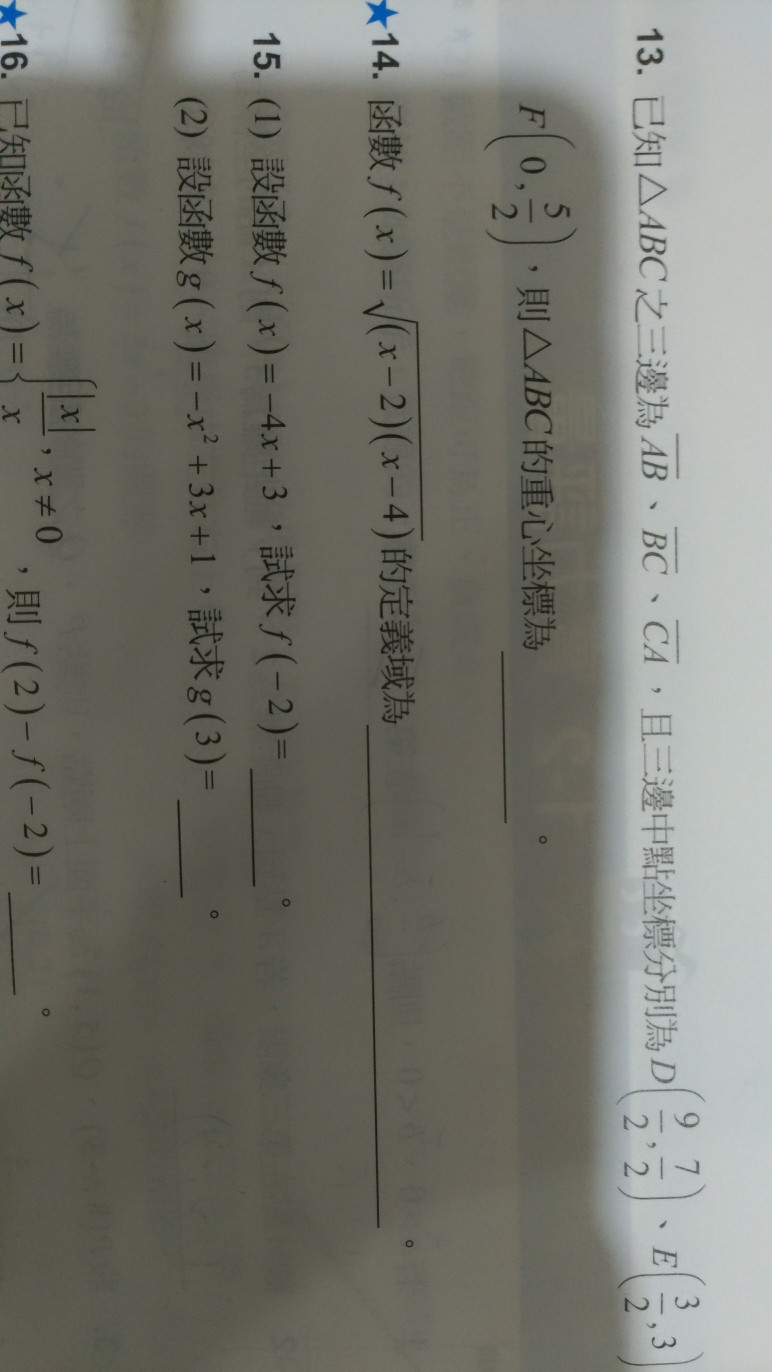 13. 已知△ABC之三邊為 AB、BC、CA，且三邊中點坐標分別為 D(9/2, 7/2)、E(3/2, 3)
F(0, 5/2)，則△ABC的重心坐標為______。
★14. 函數 f(x)=√(x-2)(x-4) 的定義域為______。
15. (1) 設函數 f(x)=-4x+3，試求 f(-2)=______。
(2) 設函數 g(x)=-x²+3x+1，試求 g(3)=______。
★16. 已知函數 f(x)={|x|/x, x≠0，則 f(2)-f(-2)=______。